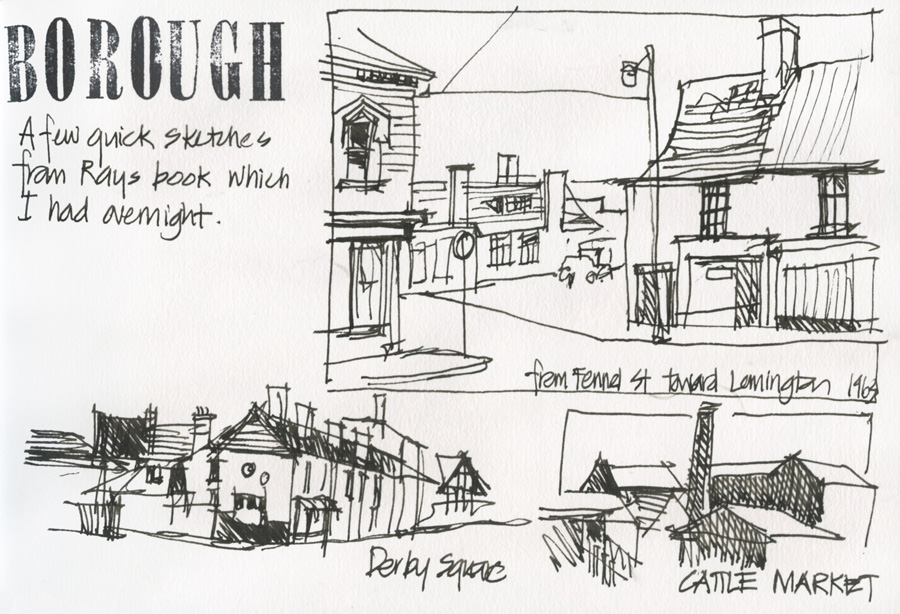 BOROUGH
A few quick sketches
from Rays book which
I had overnight.
from Fennel St toward Lemington 1963
Derby Square
CATTLE MARKET